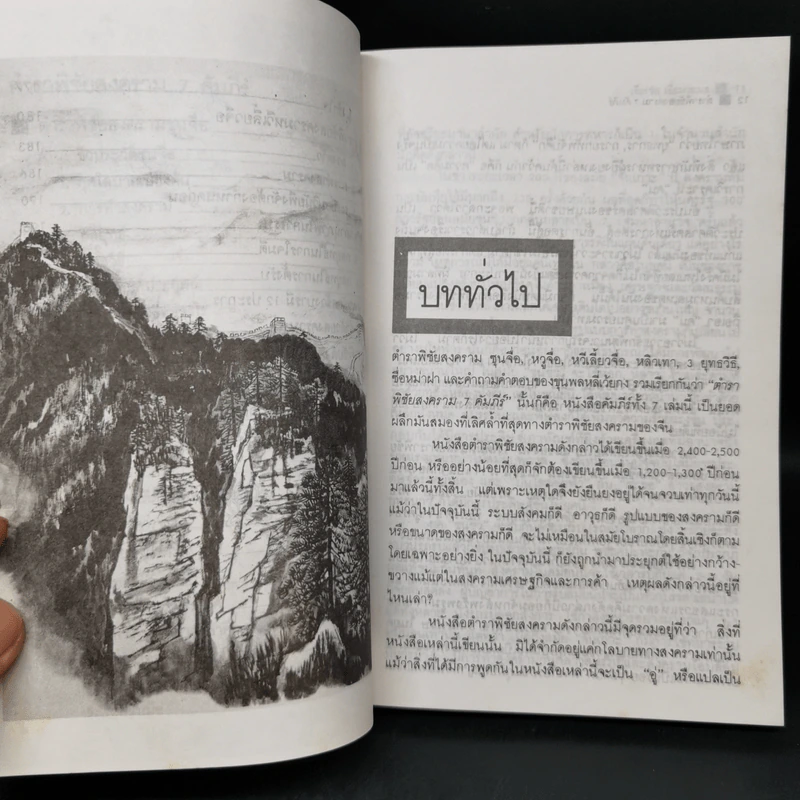 บททั่วไป
ตำราพิชัยสงคราม ซุนจื่อ, หวูจื่อ, หวีเลี้ยวจื่อ, หลิวเทา, 3 ยุทธวิธี,
ซือหม่าฝา และคำถามคำตอบของขุนพลหลี่เว้ยกง รวมเรียกกันว่า “ตำรา
พิชัยสงคราม 7 คัมภีร์” นั้นก็คือ หนังสือคัมภีร์ทั้ง 7 เล่มนี้ เป็นยอด
ผลึกมันสมองที่เลิศล้ำที่สุดทางตำราพิชัยสงครามของจีน
หนังสือตำราพิชัยสงครามดังกล่าวได้เขียนขึ้นเมื่อ 2,400-2,500
ปีก่อน หรืออย่างน้อยที่สุดก็จักต้องเขียนขึ้นเมื่อ 1,200-1,300 ปีก่อน
มาแล้วนี้ทั้งสิ้น แต่เพราะเหตุใดจึงยังยืนยงอยู่ได้จนจวบเท่าทุกวันนี้
แม้ว่าในปัจจุบันนี้ ระบบสังคมก็ดี อาวุธก็ดี รูปแบบของสงครามก็ดี
หรือขนาดของสงครามก็ดี จะไม่เหมือนในสมัยโบราณโดยสิ้นเชิงก็ตาม
โดยเฉพาะอย่างยิ่ง ในปัจจุบันนี้ ก็ยังถูกนำมาประยุกต์ใช้อย่างกว้าง-
ขวางแม้แต่ในสงครามเศรษฐกิจและการค้า เหตุผลดังกล่าวนี้อยู่ที่
ไหนเล่า?
หนังสือตำราพิชัยสงครามดังกล่าวนี้มีจุดรวมอยู่ที่ว่า สิ่งที่
หนังสือเหล่านี้เขียนนั้น มิได้จำกัดอยู่แค่กโลบายทางสงครามเท่านั้น
แม้ว่าสิ่งที่ได้มีการพูดกันในหนังสือเหล่านี้จะเป็น “อู่” หรือแปลเป็น